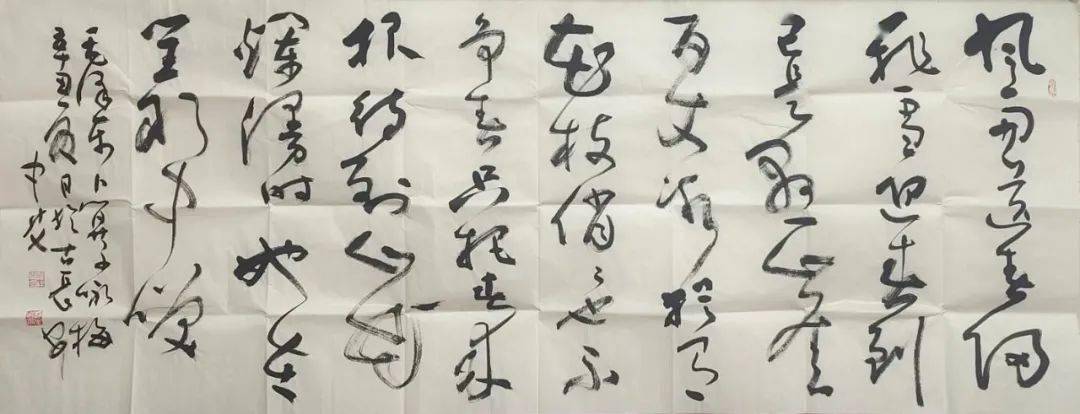 風雨送春歸
飛雪迎春到
已是懸崖
百丈冰猶有
花枝俏俏也不
争春只把春来
报待到山花
爛漫时她在
叢中笑
毛泽东卜算子咏梅
辛丑月日於古長安